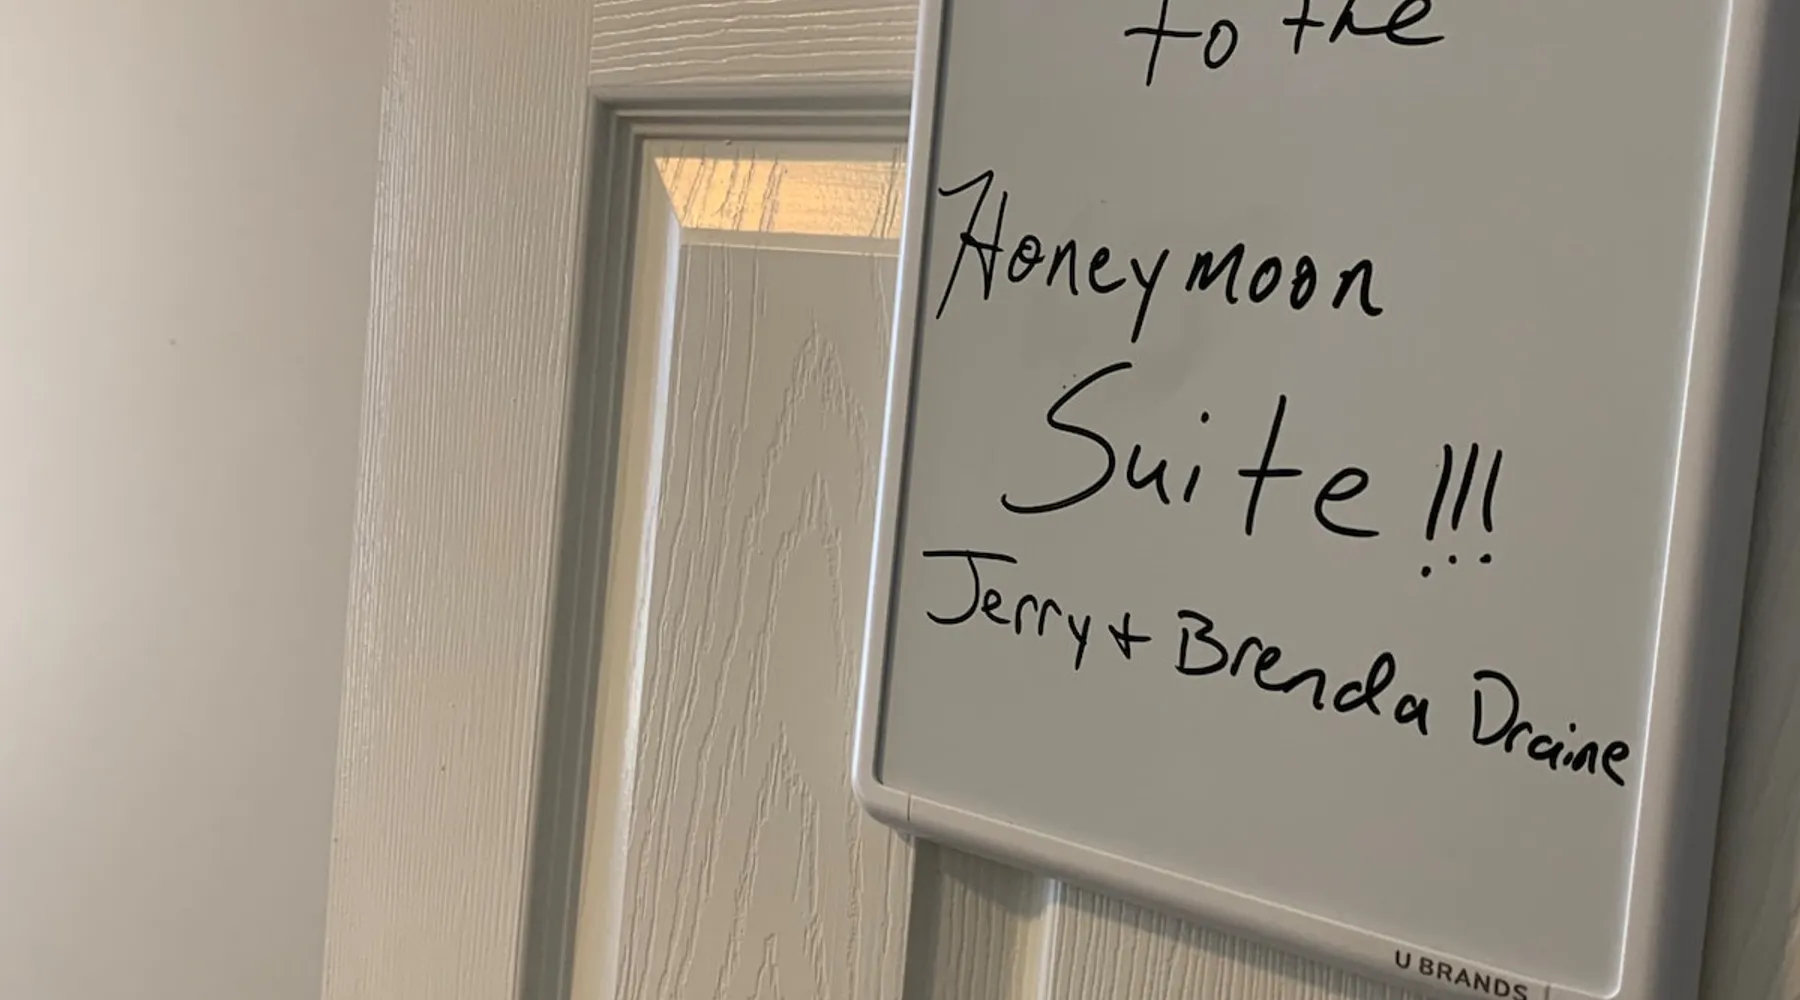 to the
Honeymoon
Suite!!!
Jerry + Brenda Draine
U BRANDS